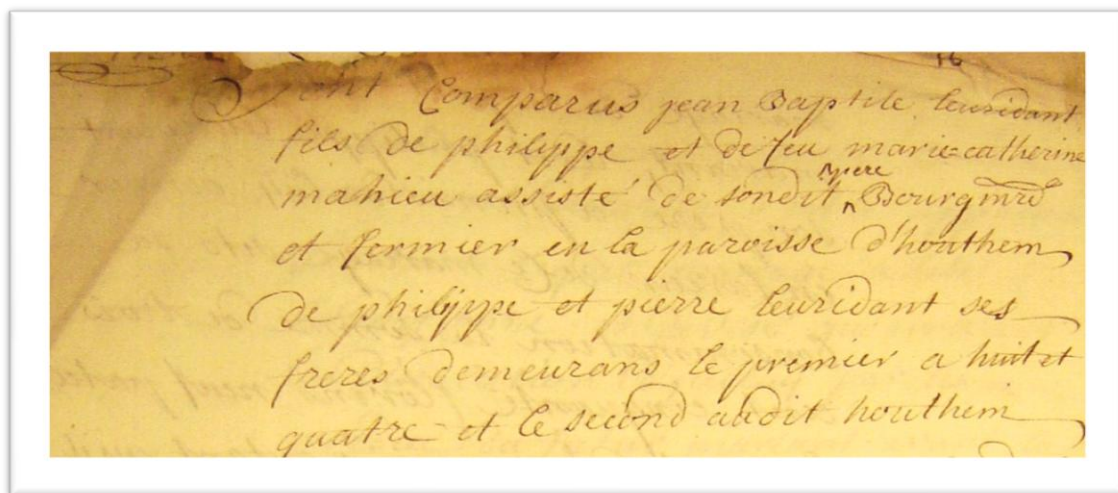 16
Sont Comparus jean Baptite leuridant
fils de philippe et de feu marie-catherine
mahieu assisté de sondit pere Bourgmre
et fermier en la paroisse d'houthem
de philippe et pierre leuridant ses
freres demeurans le premier a huit et
quatre et le second audit houthem